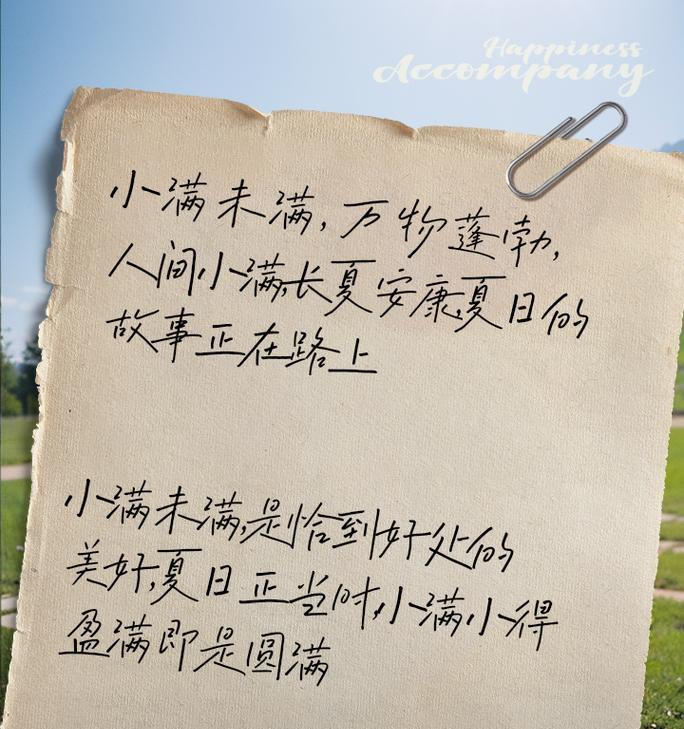 Happiness
Accompany
小满未满,万物蓬勃,
人间小满,长夏安康,夏日的
故事正在路上
小满未满,是恰到好处的
美好,夏日正当时,小满小得
盈满即是圆满